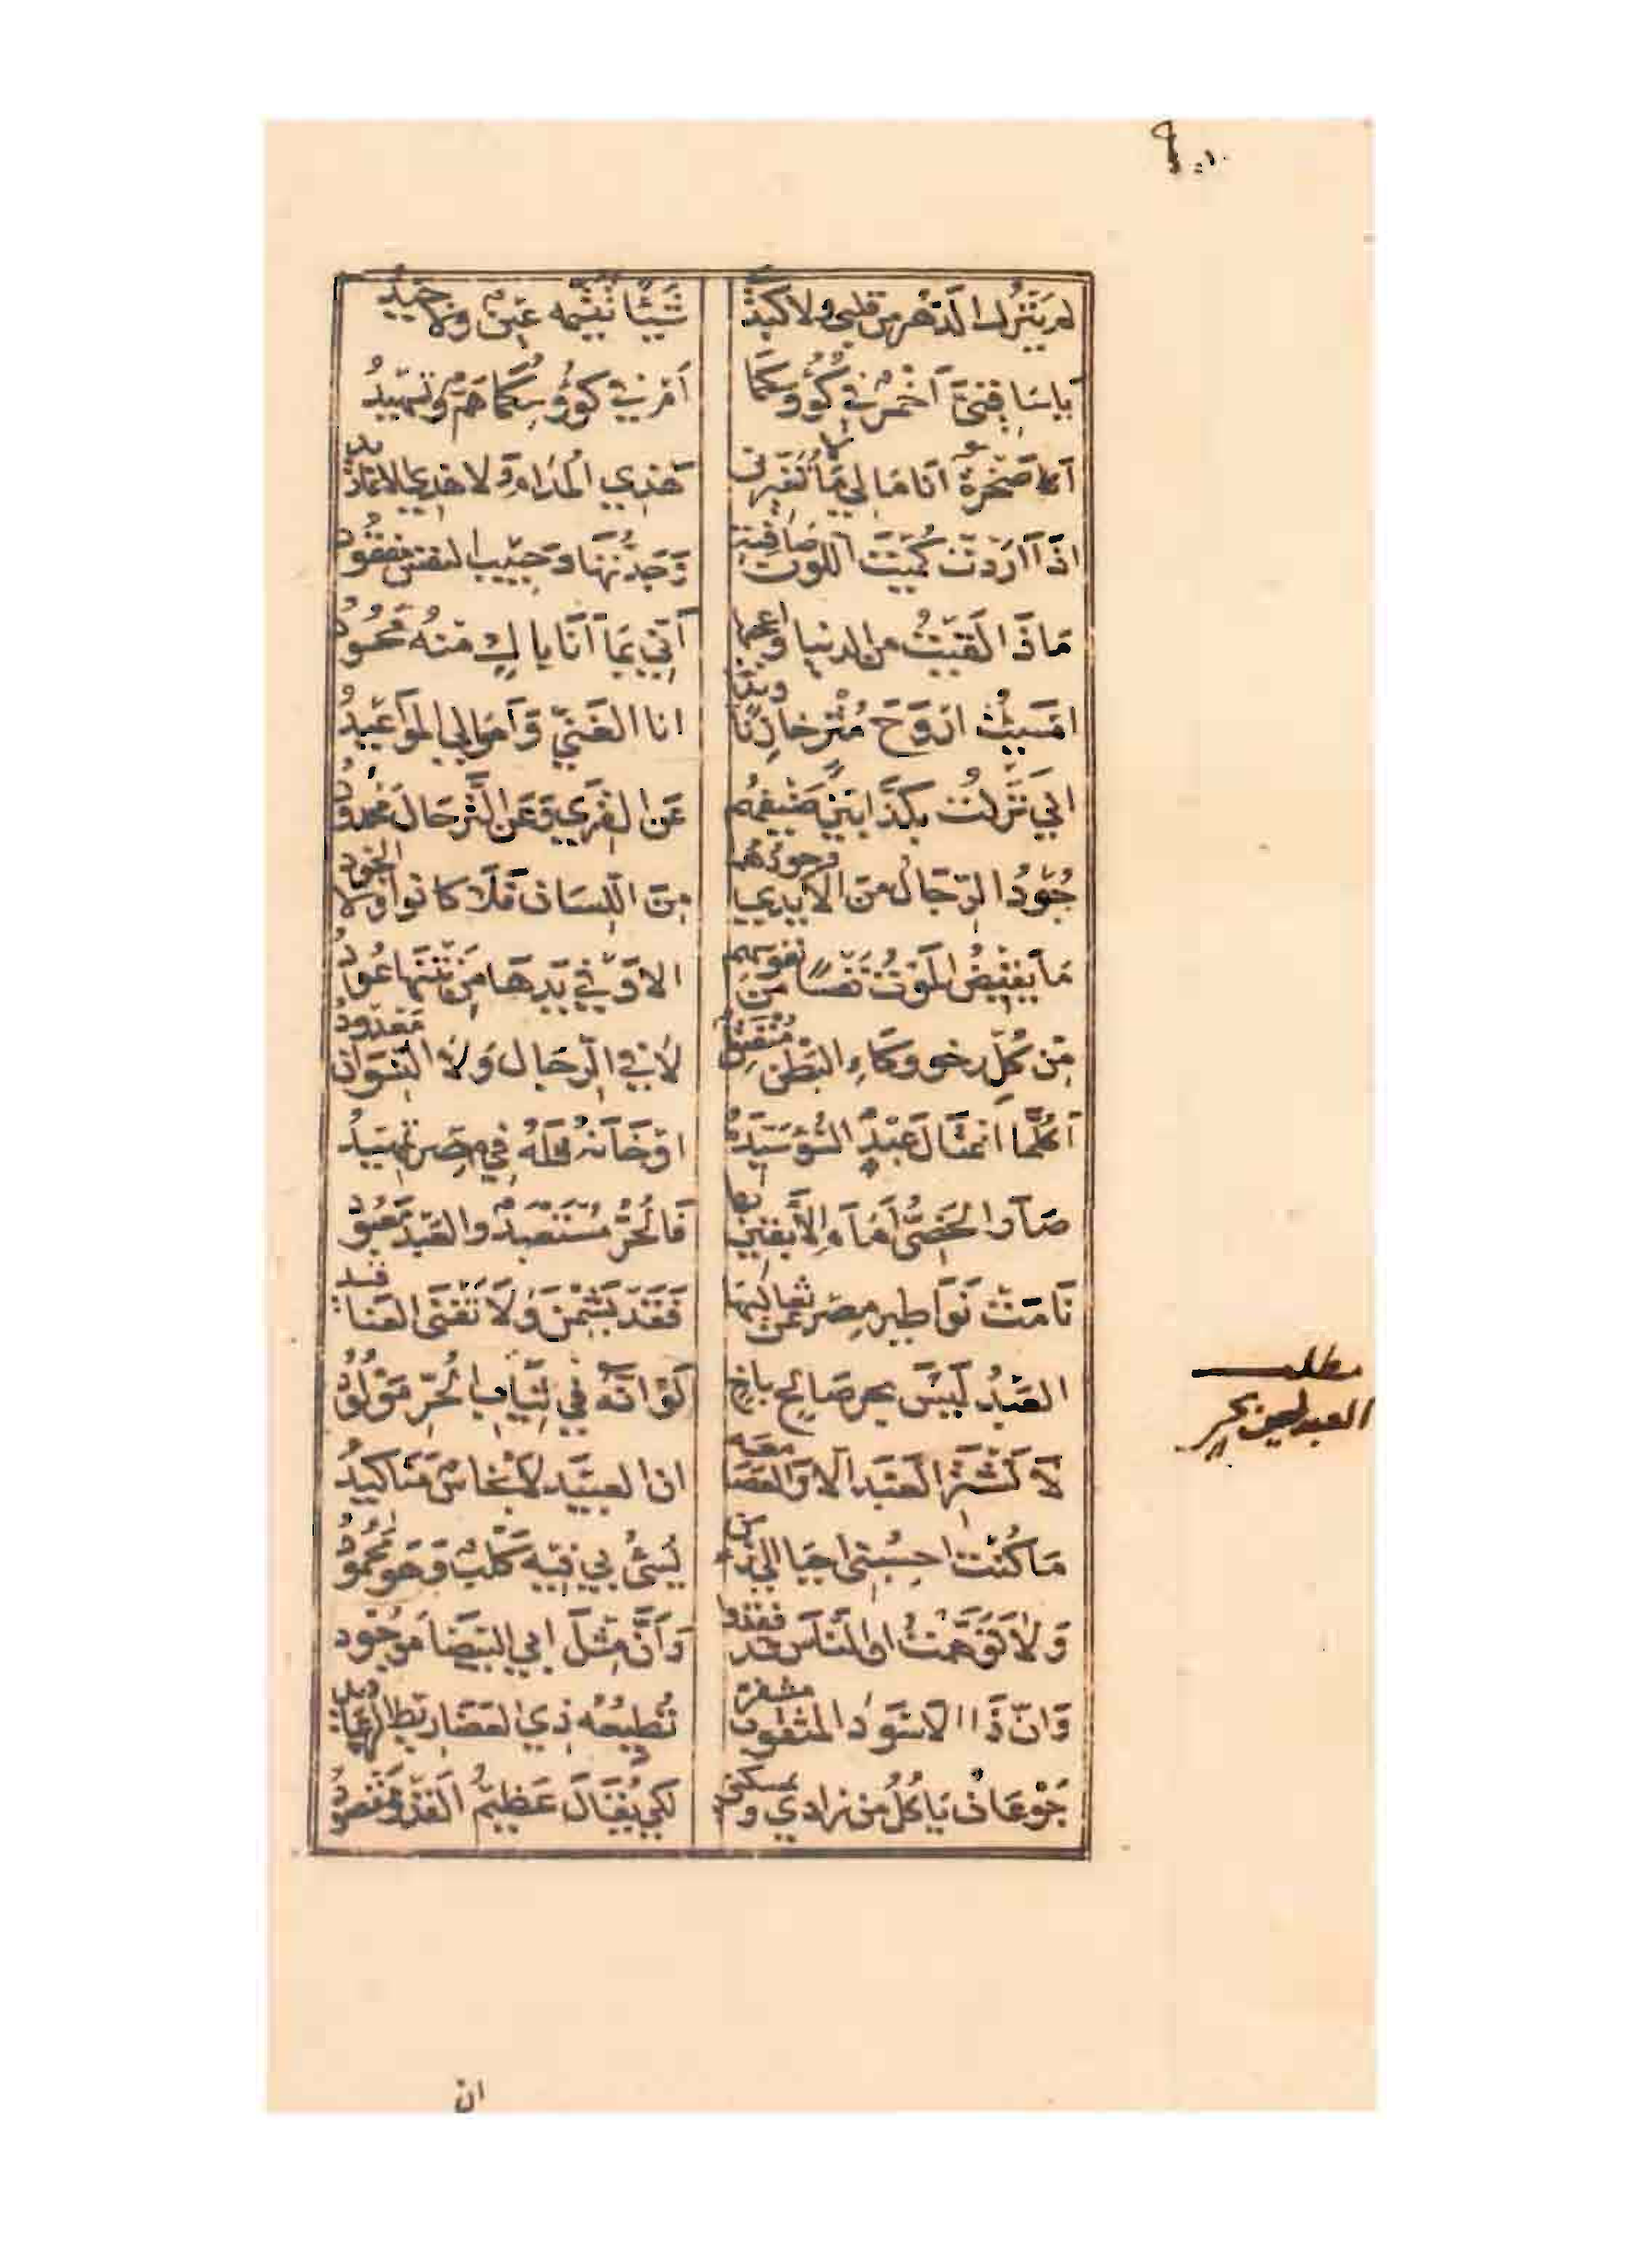 لم يَترُك الدّهر من قلبي ولا كَبدٌ شَيئًا تُتَيّمه عَينٌ ولا جيدُ
يَا سَاقِيَيَّ آخْمرٌ في كُؤُوسِكُمَا اَمْ في كؤُوسِكُمَا هَمٌّ وتسهِيدُ
اَصَخْرَةٌ انَا مَا لِي مَا تُغَيِّرني هَذِي المُدَام وَلا هذي الاغاريد
اذَا اَرَدْت كُمَيْتَ اللون صَافيةً وَجَدْتُهَا وَحَبيب النفس مفقُود
مَاذَا لَقِيْتُ من الدنيا وَاعجبها أنّي بمَا اَنَا باكٍ منهُ مَحْسُودُ
امسَيْتُ ارْوَحَ مُثْرٍ خازِنًا ويدًا انا الغَنيّ وَاَموالي المَوَاعِيدُ
اني نَزلتُ بكَذّابين ضَيفهُم عَن القِرَي وَعَن التَّرحَال مَحدودُ
جُوْدُ الرّجَال من الايدي وجودُهُم مِنَ اللّسَان فَلَا كانوا وَلَا الجود
مَا يَقبِضُ المَوْتُ نَفْسًا من نفوسهم الا وَفي يَدِهَا مِن نَتنهَا عُودُ
مِن كُلّ رخو وكَاءِ البَطْن مُنْفَتِق لا في الرّجَال وَلَا النّسْوَان مَعْدُودُ
اَكُلّما اغتَالَ عَبْدُ السُّوْ سَيّدَهُ اوْ خَانَهُ فَلَهُ في مصر تمهيدُ
صَارَ الخَصِيُّ اِمَامَ الآبقِين بها فَالحُرُّ مُسْتَعبَدٌ والعَبْد مَعْبُودُ
نَامَتْ نَوَاطير مِصر عَن ثعالبها فَقَدْ بَشِمْنَ وَلَا تَفْنَى العَناقيد
العَبْدُ لَيْسَ بحر صَالحٍ باخٍ لَوْ انّهُ في ثيَاب الحُرّ مَوْلُودُ
لَا تَشْتَرِ العَبْد الا وَالعَصَا مَعَه ان العبيد لَانْجَاسٌ مَنَاكيدُ
مَا كُنْت احسِبُني احيَا الي زمن يُسئُ بي فيه كَلْبٌ وَهو مَحْمُودُ
وَلَا تَوَهَّمْتُ ان النَاسَ قد فقدوا وَاَنّ مِثْلَ ابي البَيضَا مَوجُود
وَانّ ذَا الاسْوَد المثقوب مشفره تُطيعُه ذي العَضَاريط الرعاديد
جَوْعَان يَاكُلُ من زادي ويمسكني لكي يُقَالَ عَظيمُ القَدْر مَقْصودُ
مطلب
العبد ليس بحر
ان